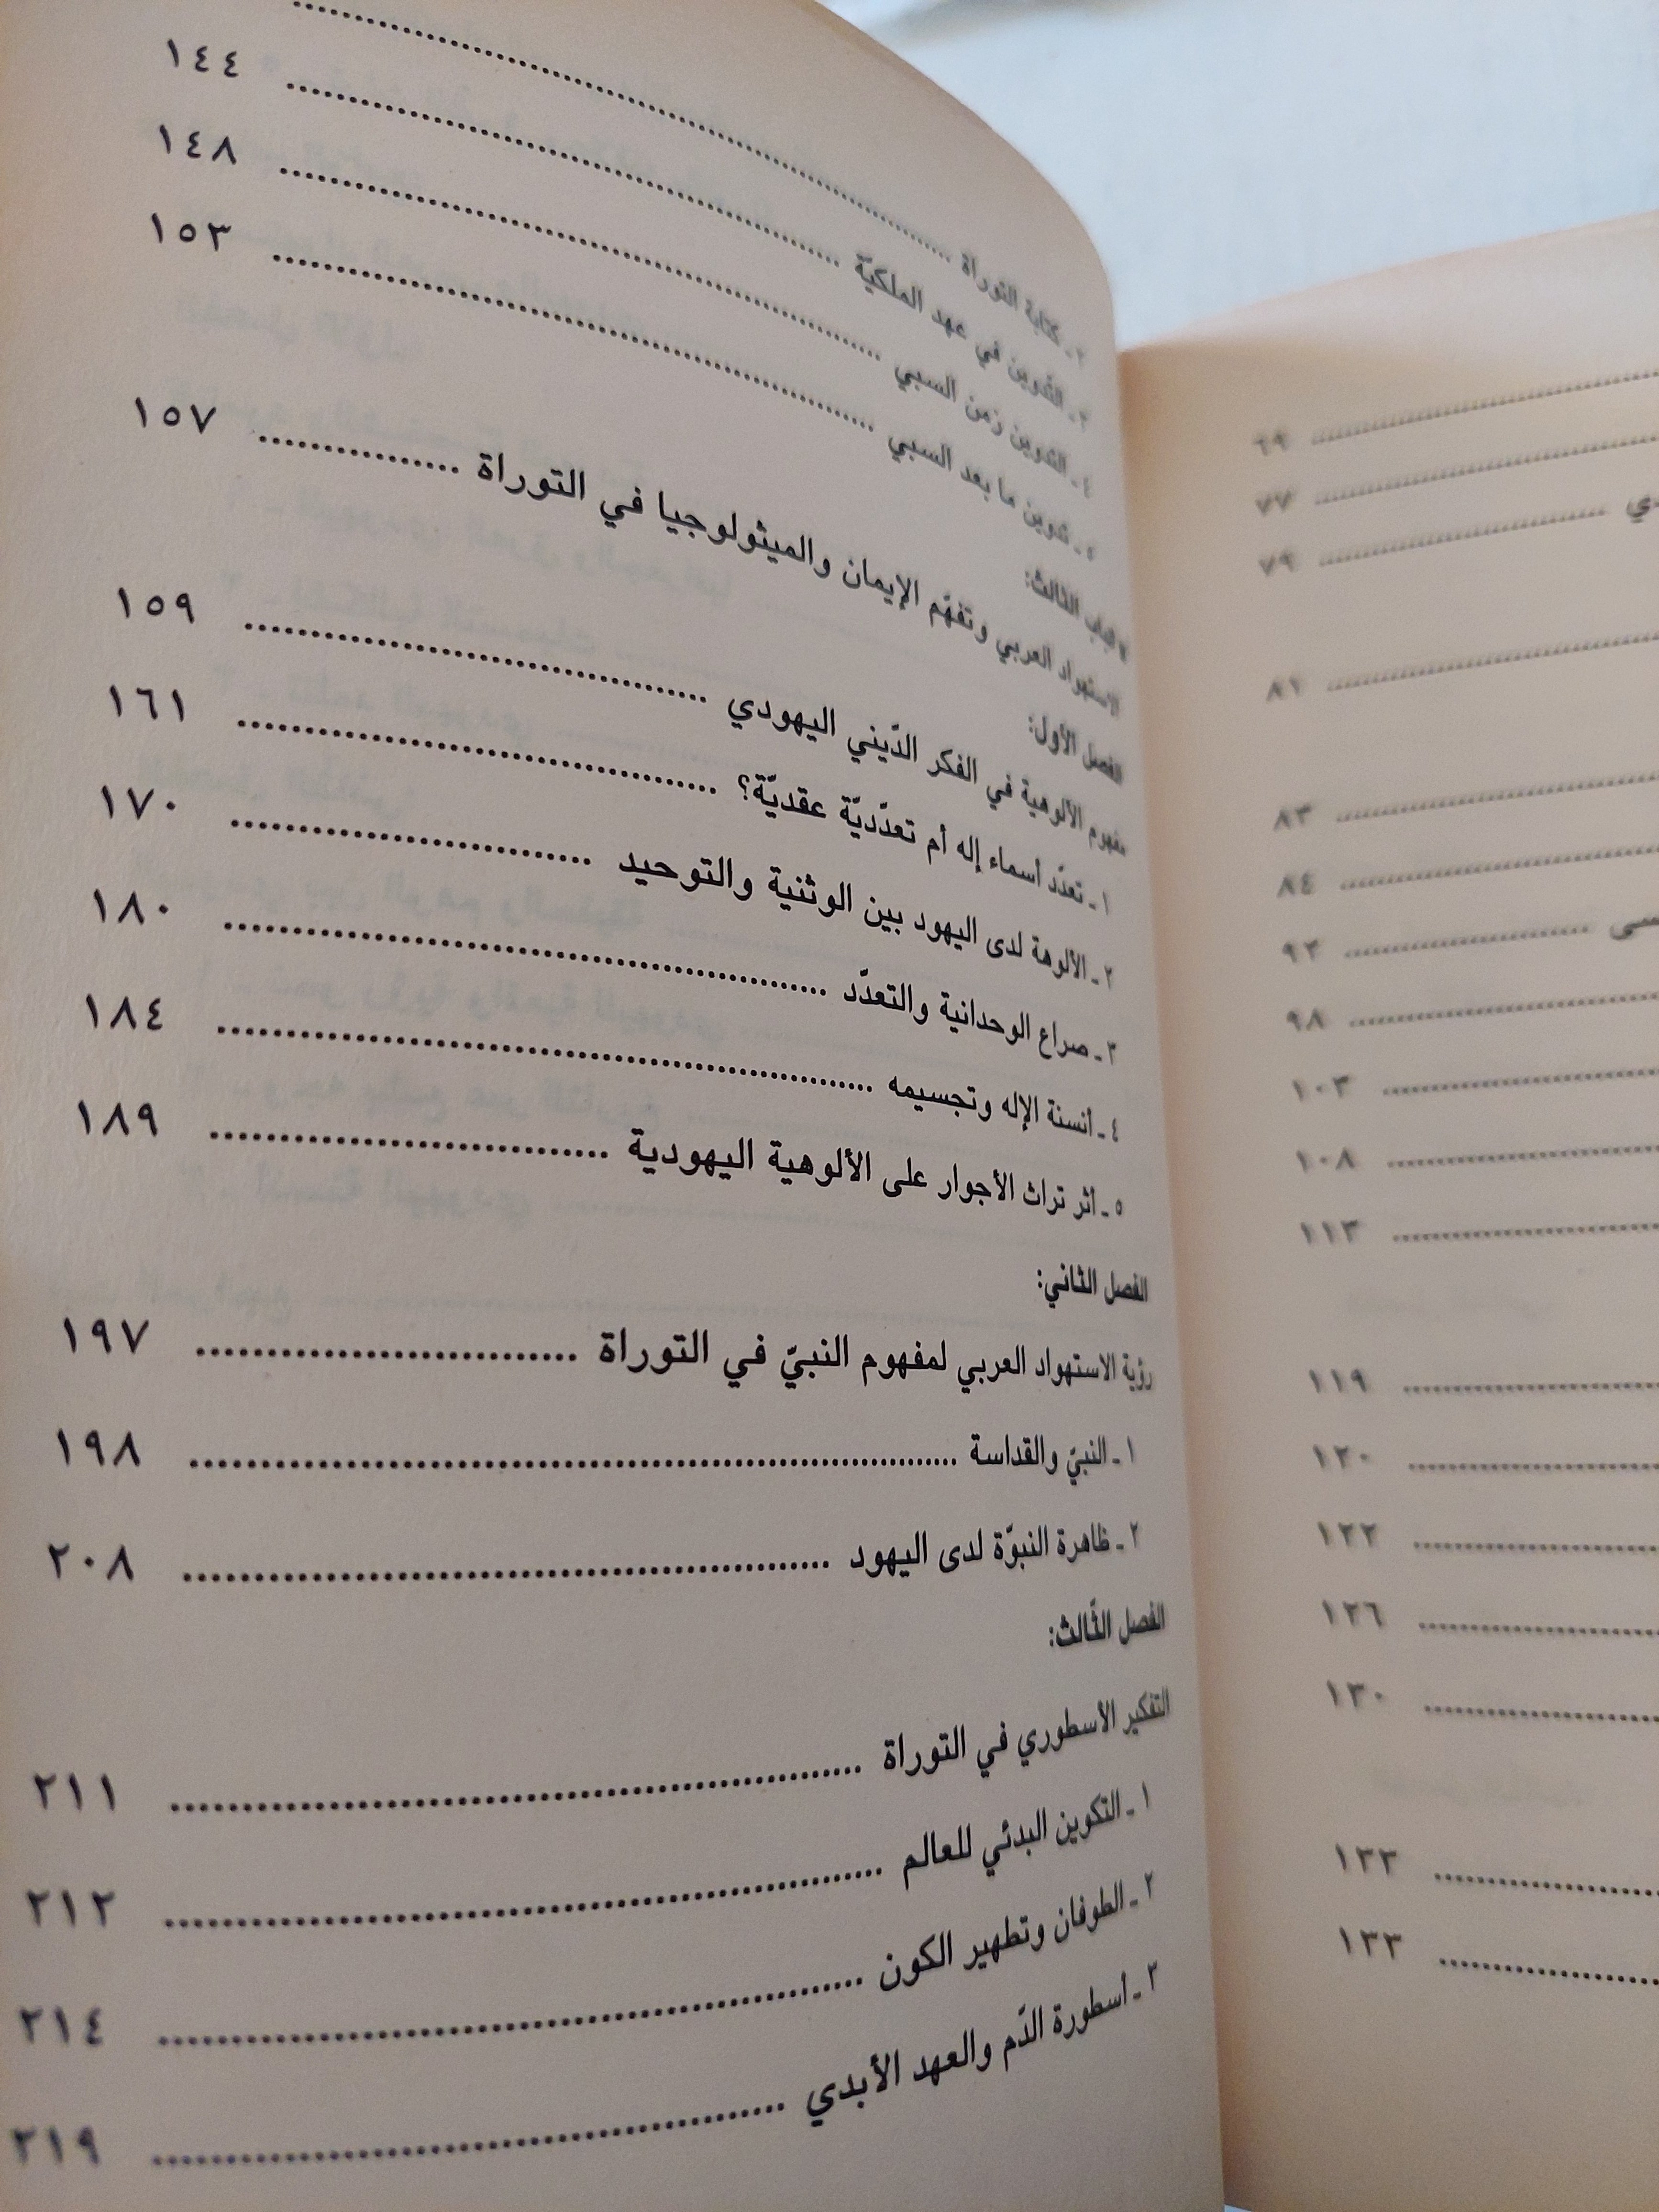 ٦٩
٧٧
دي ٧٩
٨١
٨٣
٨٤
سى ٩٢
٩٨
١٠٣
١٠٨
١١٣
١١٩
١٢٠
١٢٢
١٢٦
١٣٠
١٣٣
١٣٣
٢ ـ كتابة التوراة
٣ ـ التدوين في عهد الملكيّة ١٤٤
٤ ـ التدوين زمن السبي ١٤٨
٥ ـ تدوين ما بعد السبي ١٥٣
الباب الثالث:
الاستهواد العربي وتفهّم الإيمان والميثولوجيا في التوراة ١٥٧
الفصل الأول:
مفهوم الألوهية في الفكر الدّيني اليهودي ١٥٩
١ ـ تعدّد أسماء إله أم تعدّديّة عقديّة؟ ١٦١
٢ ـ الألوهة لدى اليهود بين الوثنية والتوحيد ١٧٠
٣ ـ صراع الوحدانية والتعدّد ١٨٠
٤ ـ أنسنة الإله وتجسيمه ١٨٤
٥ ـ أثر تراث الأجوار على الألوهية اليهودية ١٨٩
الفصل الثاني:
رؤية الاستهواد العربي لمفهوم النبيّ في التوراة ١٩٧
١ ـ النبيّ والقداسة ١٩٨
٢ ـ ظاهرة النبوّة لدى اليهود ٢٠٨
الفصل الثّالث:
التفكير الأسطوري في التوراة ٢١١
١ ـ التكوين البدئي للعالم ٢١٢
٢ ـ الطوفان وتطهير الكون ٢١٤
٣ ـ أسطورة الدّم والعهد الأبدي ٢١٩